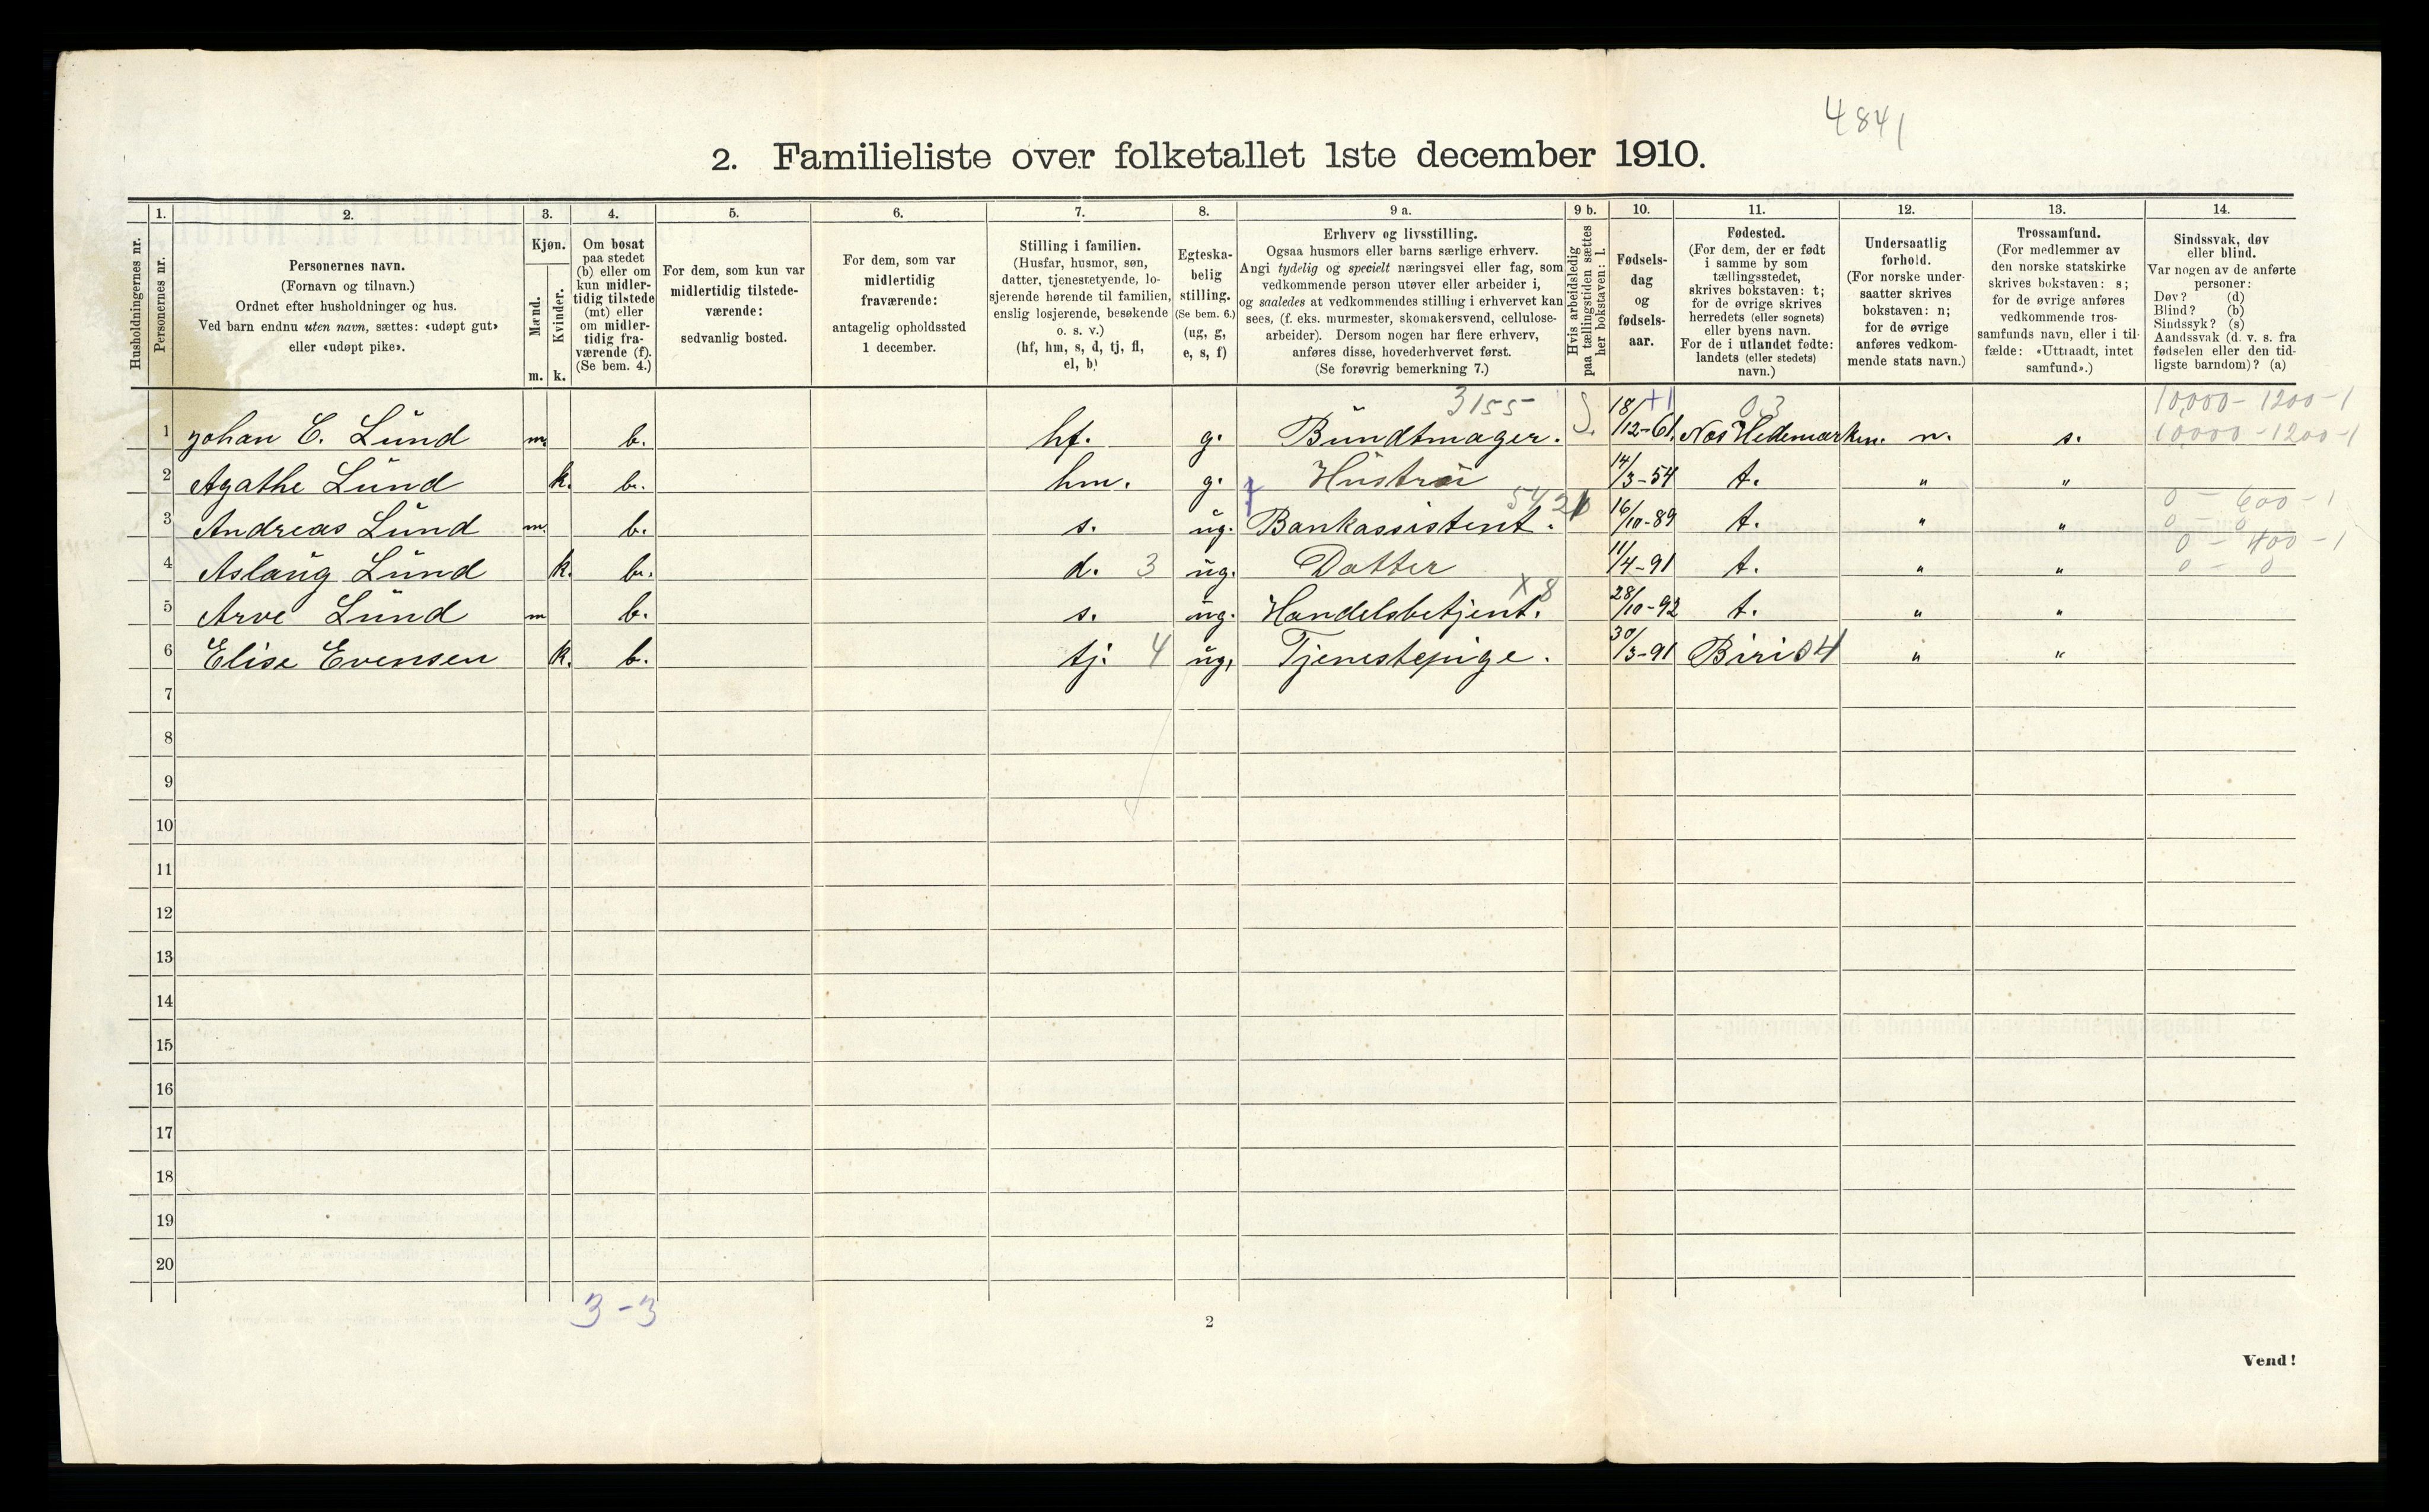 4841
2. Familieliste over folketallet 1ste december 1910.
Husholdningernes nr.
1. Personernes nr.
2. Personernes navn. (Fornavn og tilnavn.) Ordnet efter husholdninger og hus. Ved barn endnu uten navn, sættes: «udøpt gut» eller «udøpt pike».
3. Kjøn. Mænd. m. Kvinder. k.
4. Om bosat paa stedet (b) eller om kun midlertidig tilstede (mt) eller om midlertidig fraværende (f). (Se bem. 4.)
5. For dem, som kun var midlertidig tilstedeværende: sedvanlig bosted.
6. For dem, som var midlertidig fraværende: antagelig opholdssted 1 december.
7. Stilling i familien. (Husfar, husmor, søn, datter, tjenestetyende, losjerende hørende til familien, enslig losjerende, besøkende o. s. v.) (hf, hm, s, d, tj, fl, el, b)
8. Egteskabelig stilling. (Se bem. 6.) (ug, g, e, s, f)
9 a. Erhverv og livsstilling. Ogsaa husmors eller barns særlige erhverv. Angi tydelig og specielt næringsvei eller fag, som vedkommende person utøver eller arbeider i, og saaledes at vedkommendes stilling i erhvervet kan sees, (f. eks. murmester, skomakersvend, cellulosearbeider). Dersom nogen har flere erhverv, anføres disse, hovederhvervet først. (Se forøvrig bemerkning 7.)
9 b. Hvis arbeidsledig paa tællingstiden sættes her bokstaven: l.
10. Fødselsdag og fødselsaar.
11. Fødested. (For dem, der er født i samme by som tællingsstedet, skrives bokstaven: t; for de øvrige skrives herredets (eller sognets) eller byens navn. For de i utlandet fødte: landets (eller stedets) navn.)
12. Undersaatlig forhold. (For norske undersaatter skrives bokstaven: n; for de øvrige anføres vedkommende stats navn.)
13. Trossamfund. (For medlemmer av den norske statskirke skrives bokstaven: s; for de øvrige anføres vedkommende trossamfunds navn, eller i tilfælde: «Uttraadt, intet samfund».)
14. Sindssvak, døv eller blind. Var nogen av de anførte personer: Døv? (d) Blind? (b) Sindssyk? (s) Aandssvak (d. v. s. fra fødselen eller den tidligste barndom)? (a)
3155 +1 03 10,000 - 1200 - 1
1 Johan C. Lund m. b. hf. g. Bundtmager. S. 18/12-61. Næs Hedemarken. n. s. 10000 - 1200 - 1
2 Agathe Lund k. b. hm. g. Hustru 14/3-54 t. " "
542 0 - 600 - 1
3 Andreas Lund m. b. s. ug. Bankassistent. 16/10-89 t. " " 0 - 0
0 - 400 - 1
4 Aslaug Lund k. b. d. 3 ug. Datter 11/4-91 t. " " 0 - 0
x8
5 Arve Lund m b. s. ug. Handelsbetjent. 28/10-92 t. " "
6 Elise Evensen k. b. tj. 4 ug. Tjenestepige. 30/3-91 Biri 04 " "
7
8
9
10
11
12
13
14
15
16
17
18
19
20
3-3
2
Vend!